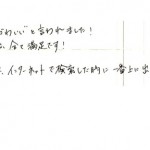 かわいい"と言われました!
、全て満足です!
、インターネットで検索した時に一番上に出